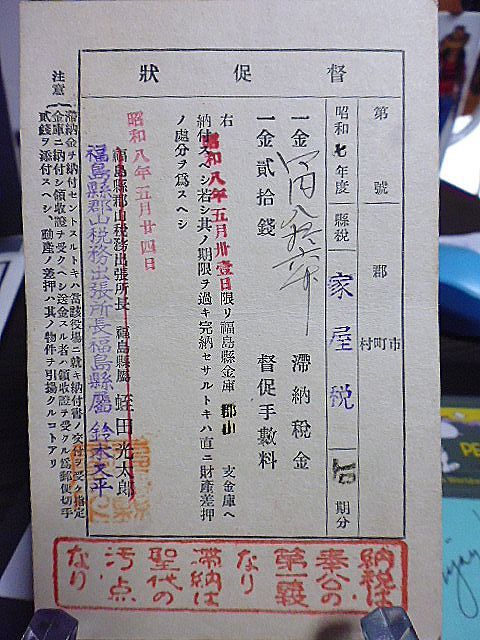 督促狀
第 號 郡 市町村
昭和七年度 縣稅 家屋税 期分
一金 滯納稅金
一金貳拾錢 督促手數料
右昭和八年五月卅壹日限リ福島縣金庫郡山支金庫ヘ
納付スヘシ若シ其ノ期限ヲ過キ完納セサルトキハ直ニ財產差押
ノ處分ヲ爲スヘシ
昭和八年五月廿四日
福島縣郡山稅務出張所長 福島縣屬 蛭田光太郎
福島縣郡山税務出張所長福島縣屬 鈴木文平
注意
滯納金ヲ納付セントスルトキハ當該役場ニ就キ納付書ノ交付ヲ受ケ指定
金庫ニ納付シ領收證ヲ受クヘシ送金スル者ハ領收證ヲ受クル爲郵便切手
貳錢ヲ添付スヘシ、動產ノ差押ハ其ノ物件ヲ引揚クルコトアリ
納税は
奉公の
第一義
なり
滞納は
聖代の
汚点
なり